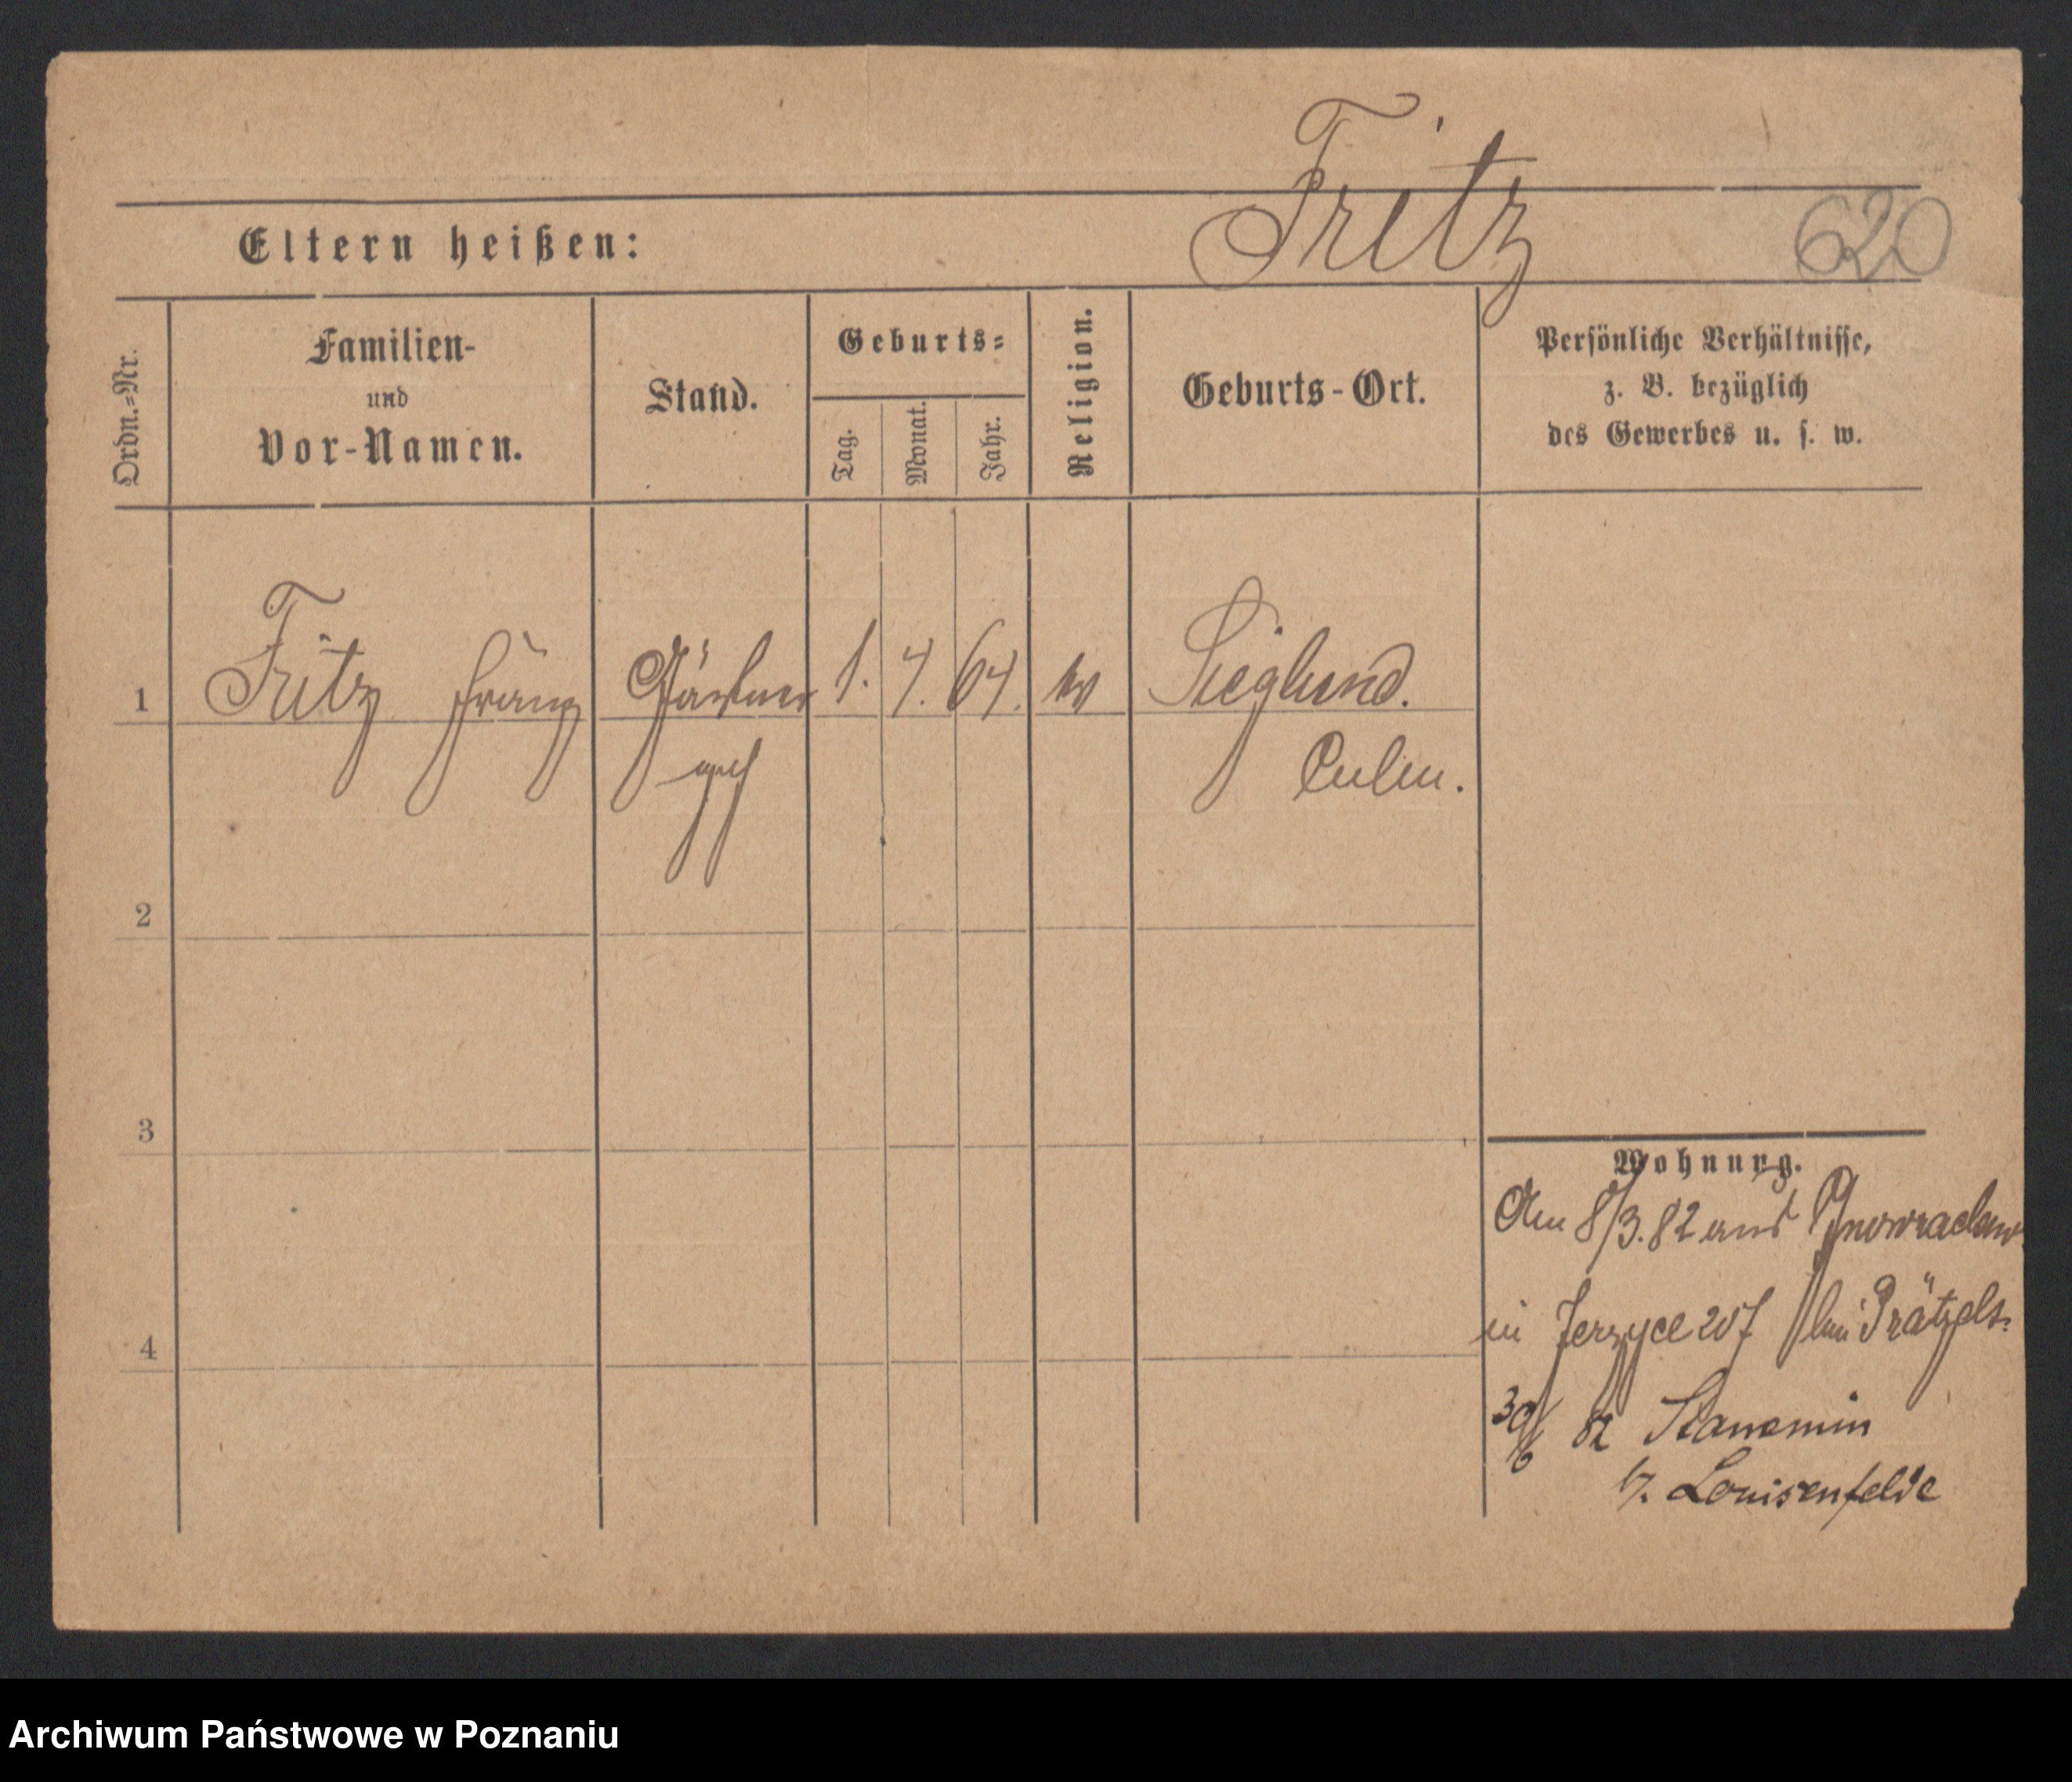 Fritz
620
Eltern heißen:
Ordn.=Nr.
Familien-
und
Vor-Namen.
Stand.
Geburts=
Tag.
Monat.
Jahr.
Religion.
Geburts-Ort.
Persönliche Verhältnisse,
z. B. bezüglich
des Gewerbes u. s. w.
1 Fritz Franz Gärtner 1. 4. 64.
Culm.
2
3
4
Wohnung.
Am 8/3. 82 aus Inowraclaw
in Jerzyce 207 bei
30/6 82 Stanomin
b/. Louisenfelde
Archiwum Państwowe w Poznaniu